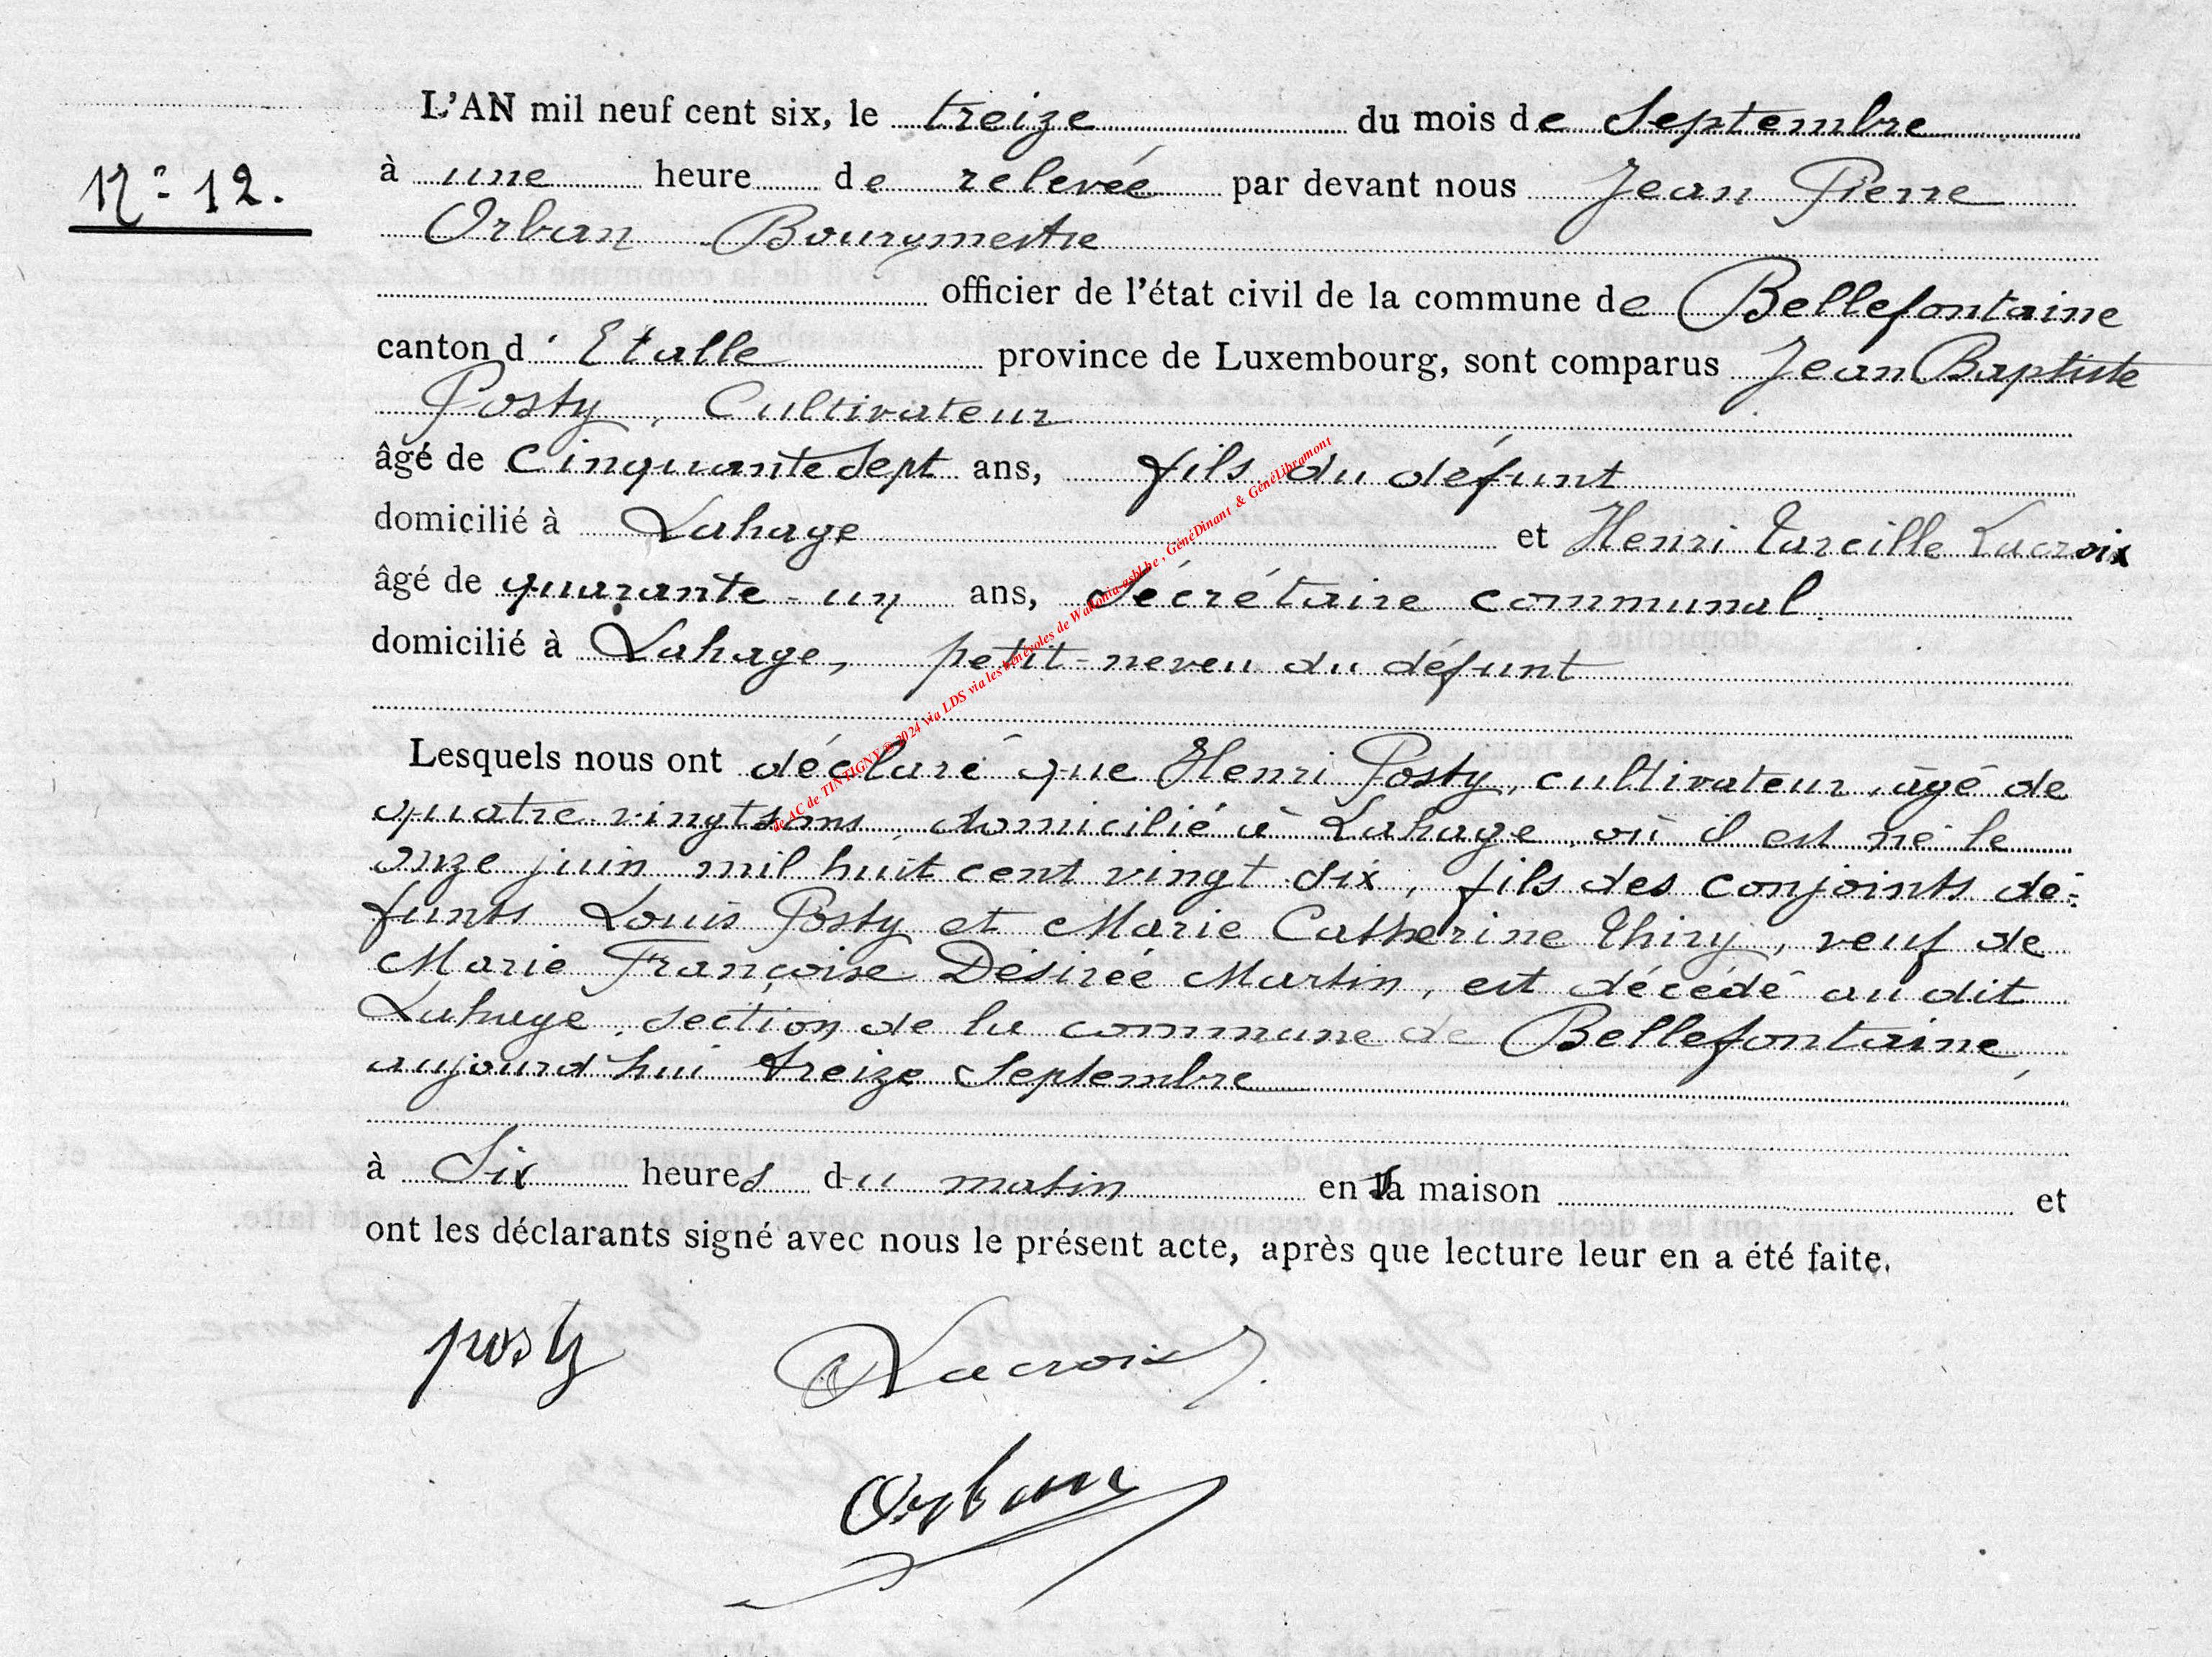 L'AN mil neuf cent six, le treize du mois de Septembre
N° 12.
à une heure de relevée par devant nous Jean Pierre
Orban Bourgmestre
officier de l'état civil de la commune de Bellefontaine
canton d'Etalle province de Luxembourg, sont comparus Jean Baptiste
Posty, Cultivateur
âgé de Cinquante Sept ans, fils du défunt
domicilié à Lahage et Henri Tarcille Lacroix
âgé de quarante-un ans, Sécrétaire communal.
domicilié à Lahage, petit-neveu du défunt
Lesquels nous ont déclaré que Henri Posty, cultivateur, âgé de
quatre-vingts ans, domicilié à Lahage, où il est né le
onze juin mil huit cent vingt six, fils des conjoints dé-
funts Louis Posty et Marie Catherine Thiry, veuf de
Marie Françoise Désirée Martin, est décédé au dit
Lahage, section de la commune de Bellefontaine,
aujourd'hui treize Septembre
à Six heures du matin en sa maison et
ont les déclarants signé avec nous le présent acte, après que lecture leur en a été faite.
posty Lacroix
Orban
de AC de TINTIGNY @ 2024 via LDS via les bénévoles de Wallonia-asbl.be, GénéDinant & GénéLibramont